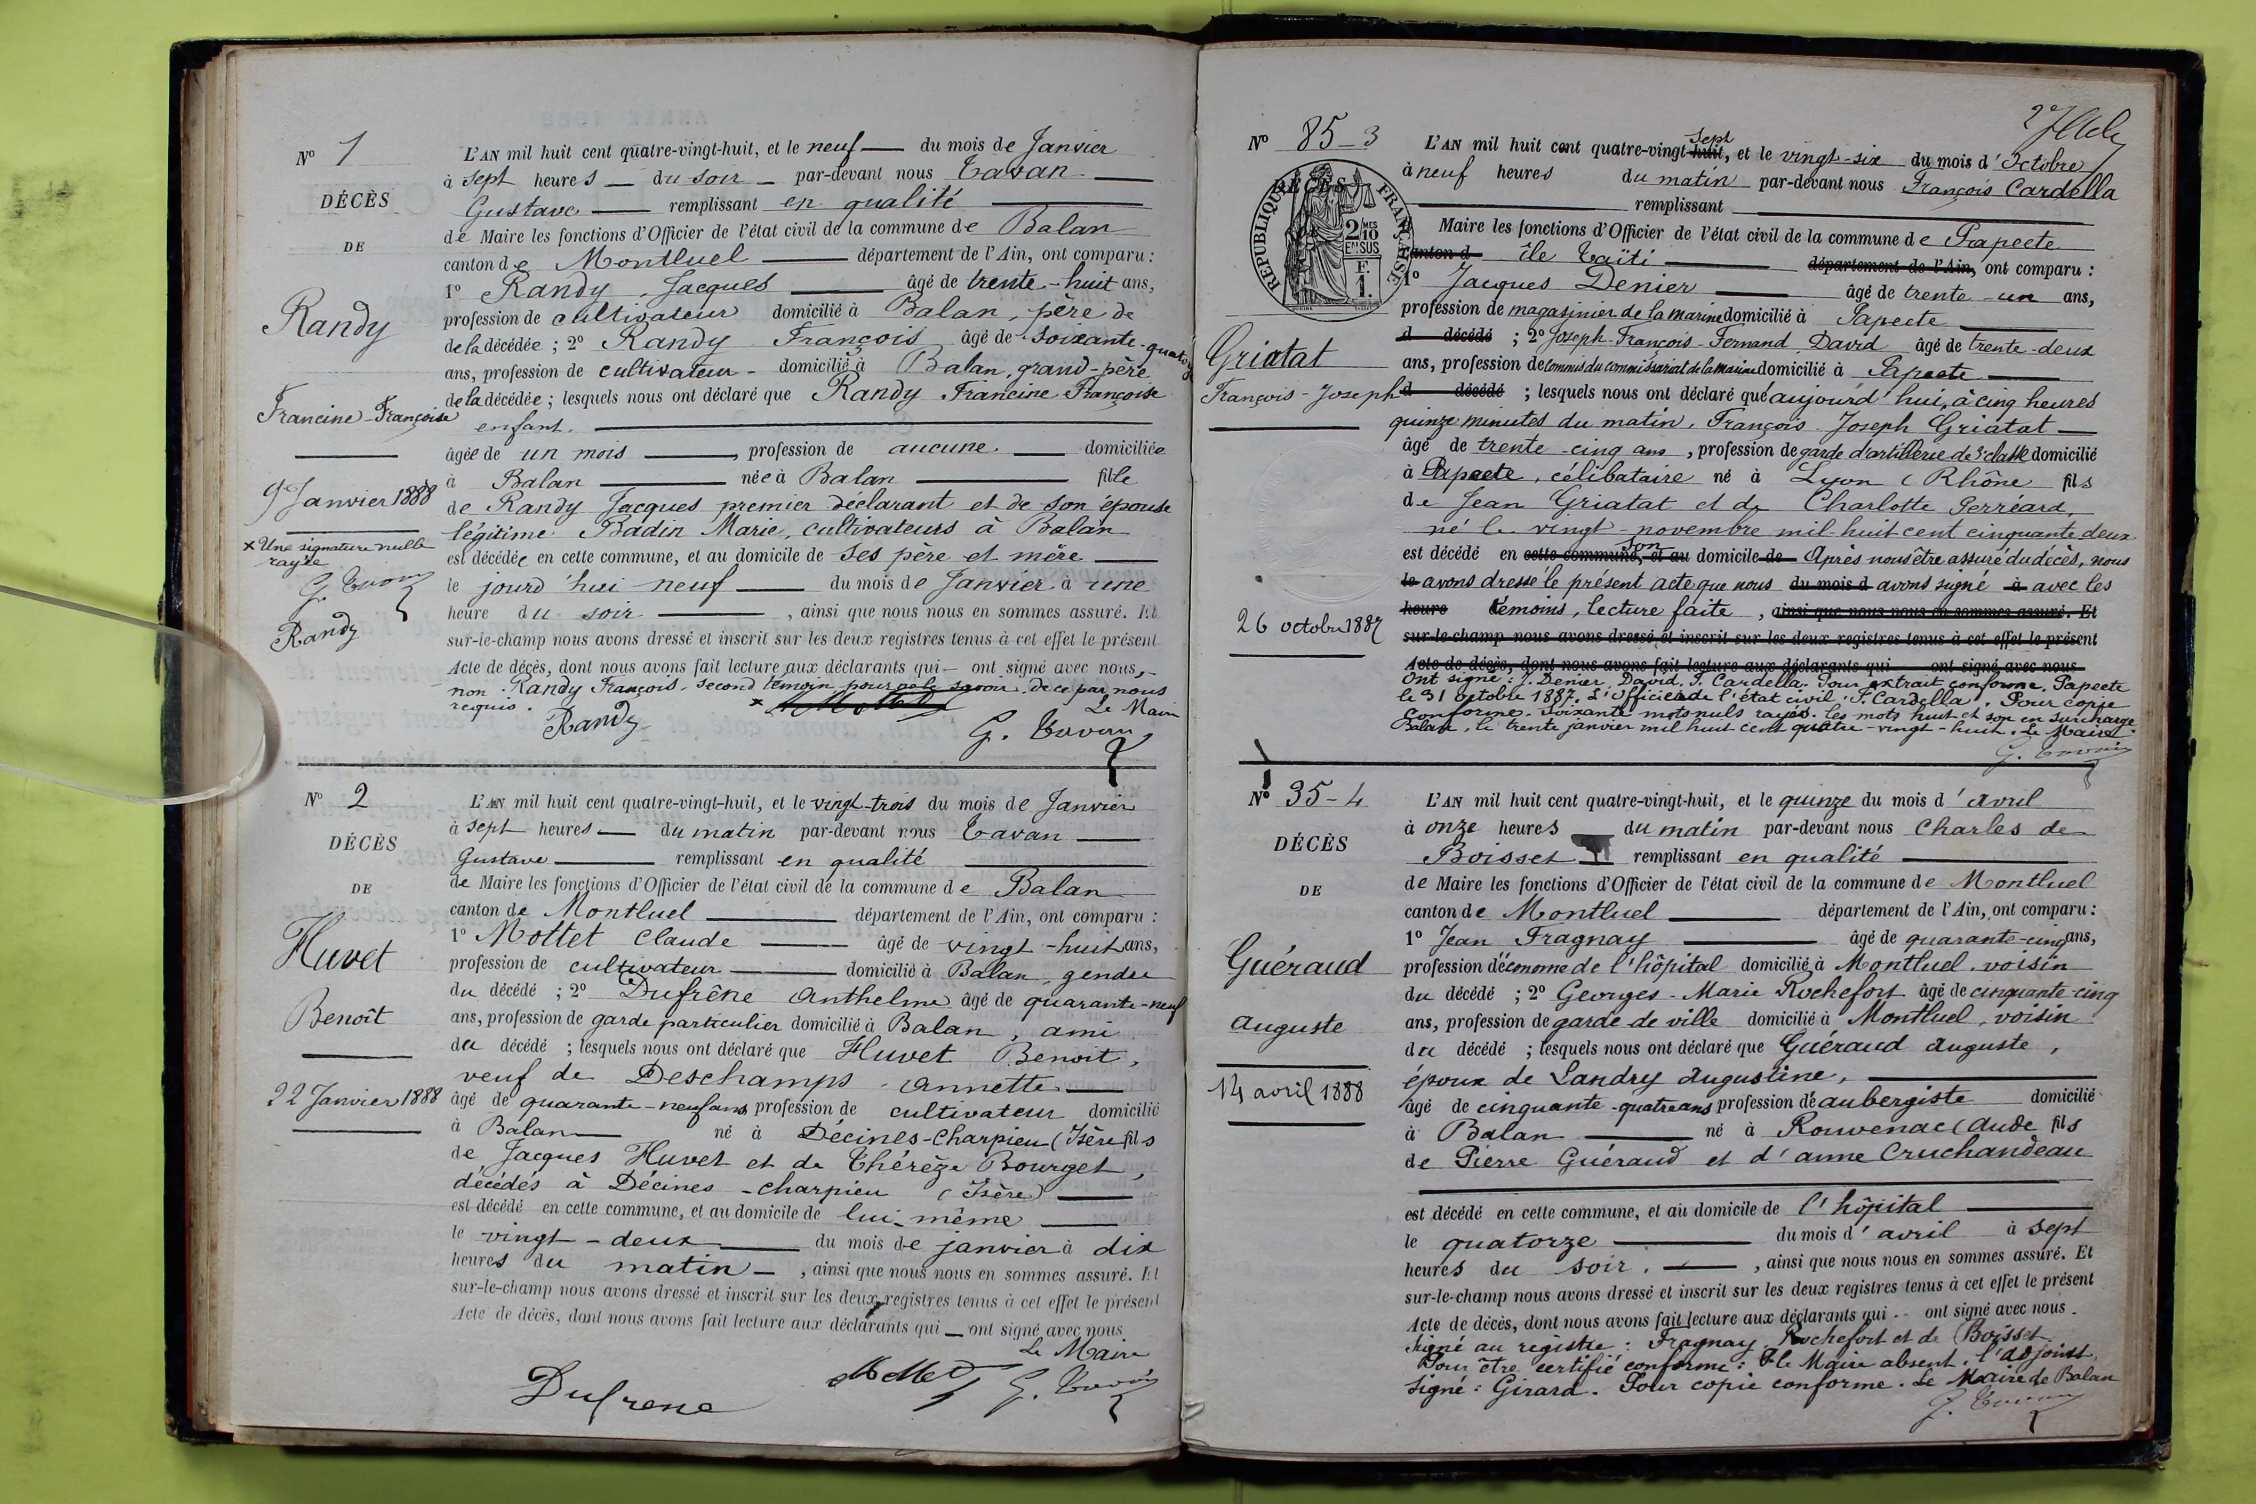 Nº 1
DÉCÈS
DE
Randy
Francine-Françoise
9 Janvier 1888
× Une signature nulle
rayée
Randy
L'AN mil huit cent quatre-vingt-huit, et le neuf du mois de Janvier
à sept heures du soir par-devant nous Tavan
Gustave remplissant en qualité
de Maire les fonctions d'Officier de l'état civil de la commune de Balan
canton de Montluel département de l'Ain, ont comparu :
1º Randy Jacques âgé de trente-huit ans,
profession de cultivateur domicilié à Balan, père de
de la décédée ; 2º Randy François âgé de soixante-quatorze
ans, profession de cultivateur domicilié à Balan, grand-père
de la décédée ; lesquels nous ont déclaré que Randy Francine Françoise
enfant.
âgée de un mois, profession de aucune. domiciliée
à Balan née à Balan fille
de Randy Jacques premier déclarant et de son épouse
légitime Badin Marie, cultivateurs à Balan
est décédée en cette commune, et au domicile de ses père et mère
le jourd'hui neuf du mois de Janvier à une
heure du soir, ainsi que nous nous en sommes assuré. Et
sur-le-champ nous avons dressé et inscrit sur les deux registres tenus à cet effet le présent
Acte de décès, dont nous avons fait lecture aux déclarants qui ont signé avec nous,
non Randy François, second témoin pour ne le savoir de ce par nous
requis.
Le Maire
Randy
Nº 2
DÉCÈS
DE
Huvet
Benoît
22 Janvier 1888
L'AN mil huit cent quatre-vingt-huit, et le vingt-trois du mois de Janvier
à sept heures du matin par-devant nous Tavan
Gustave remplissant en qualité
de Maire les fonctions d'Officier de l'état civil de la commune de Balan
canton de Montluel département de l'Ain, ont comparu :
1º Mottet Claude âgé de vingt-huit ans,
profession de cultivateur domicilié à Balan, gendre
du décédé ; 2º Dufrêne Anthelme âgé de quarante-neuf
ans, profession de garde particulier domicilié à Balan, ami
du décédé ; lesquels nous ont déclaré que Huvet Benoit,
veuf de Deschamps Annette
âgé de quarante-neuf ans profession de cultivateur domicilié
à Balan né à Décines-Charpieu (Isère fils
de Jacques Huvet et de Thérèze Bourget,
décédés à Décines-Charpieu (Isère)
est décédé en cette commune, et au domicile de lui-même
le vingt-deux du mois de janvier à dix
heures du matin, ainsi que nous nous en sommes assuré. Et
sur-le-champ nous avons dressé et inscrit sur les deux registres tenus à cet effet le présent
Acte de décès, dont nous avons fait lecture aux déclarants qui ont signé avec nous
Le Maire
Dufrene
Nº 85-3
DÉCÈS
RÉPUBLIQUE FRANÇAISE
2/10 MES
EN SUS
F.
1.
Griatat
François-Joseph
26 octobre 1887
L'AN mil huit cent quatre-vingt-huit, et le vingt-six du mois d'Octobre
sept
à neuf heures du matin par-devant nous François Cardella
remplissant
Maire les fonctions d'Officier de l'état civil de la commune de Papeete
canton d île Taïti département de l'Ain, ont comparu :
1º Jacques Denier âgé de trente-un ans,
profession de magasinier de la marine domicilié à Papeete
d décédé ; 2º Joseph-François-Fernand David âgé de trente-deux
ans, profession de commis du commissariat de la marine domicilié à Papeete
d décédé ; lesquels nous ont déclaré que aujourd'hui, à cinq heures
quinze minutes du matin, François Joseph Griatat
âgé de trente-cinq ans, profession de garde d'artillerie de 3e classe domicilié
à Papeete, célibataire né à Lyon (Rhône fils
de Jean Griatat et de Charlotte Perréard,
né le vingt-novembre mil huit cent cinquante deux
est décédé en cette commune, et au son domicile de Après nous être assuré du décès, nous
le avons dressé le présent acte que nous du mois d avons signé à avec les
heure témoins, lecture faite, ainsi que nous nous en sommes assuré. Et
sur-le-champ nous avons dressé et inscrit sur les deux registres tenus à cet effet le présent
Acte de décès, dont nous avons fait lecture aux déclarants qui ont signé avec nous
Ont signé : J. Denier, David, F. Cardella. Pour extrait conforme, Papeete
le 31 octobre 1887. L'Officier de l'état civil : F. Cardella. Pour copie
conforme. Soixante mots nuls rayés. Les mots huit et son en surcharge.
Balan, le trente janvier mil huit cent quatre-vingt-huit. Le Maire
Nº 35-4
DÉCÈS
DE
Guéraud
Auguste
14 avril 1888
L'AN mil huit cent quatre-vingt-huit, et le quinze du mois d'avril
à onze heures du matin par-devant nous Charles de
Boisset remplissant en qualité
de Maire les fonctions d'Officier de l'état civil de la commune de Montluel
canton de Montluel département de l'Ain, ont comparu :
1º Jean Fragnay âgé de quarante-cinq ans,
profession d'économe de l'hôpital domicilié à Montluel, voisin
du décédé ; 2º Georges-Marie Rochefort âgé de cinquante-cinq
ans, profession de garde de ville domicilié à Montluel, voisin
du décédé ; lesquels nous ont déclaré que Guéraud Auguste,
époux de Landry Augustine,
âgé de cinquante-quatre ans profession d'aubergiste domicilié
à Balan né à Rouvenac (Aude fils
de Pierre Guéraud et d'Anne Cruchandeau
est décédé en cette commune, et au domicile de l'hôpital
le quatorze du mois d'avril à sept
heures du soir, ainsi que nous nous en sommes assuré. Et
sur-le-champ nous avons dressé et inscrit sur les deux registres tenus à cet effet le présent
Acte de décès, dont nous avons fait lecture aux déclarants qui ont signé avec nous.
Signé au registre : Fragnay, Rochefort et de Boisset.
Pour être certifié conforme : Le Maire absent, l'adjoint,
Signé : Girard. Pour copie conforme. Le Maire de Balan